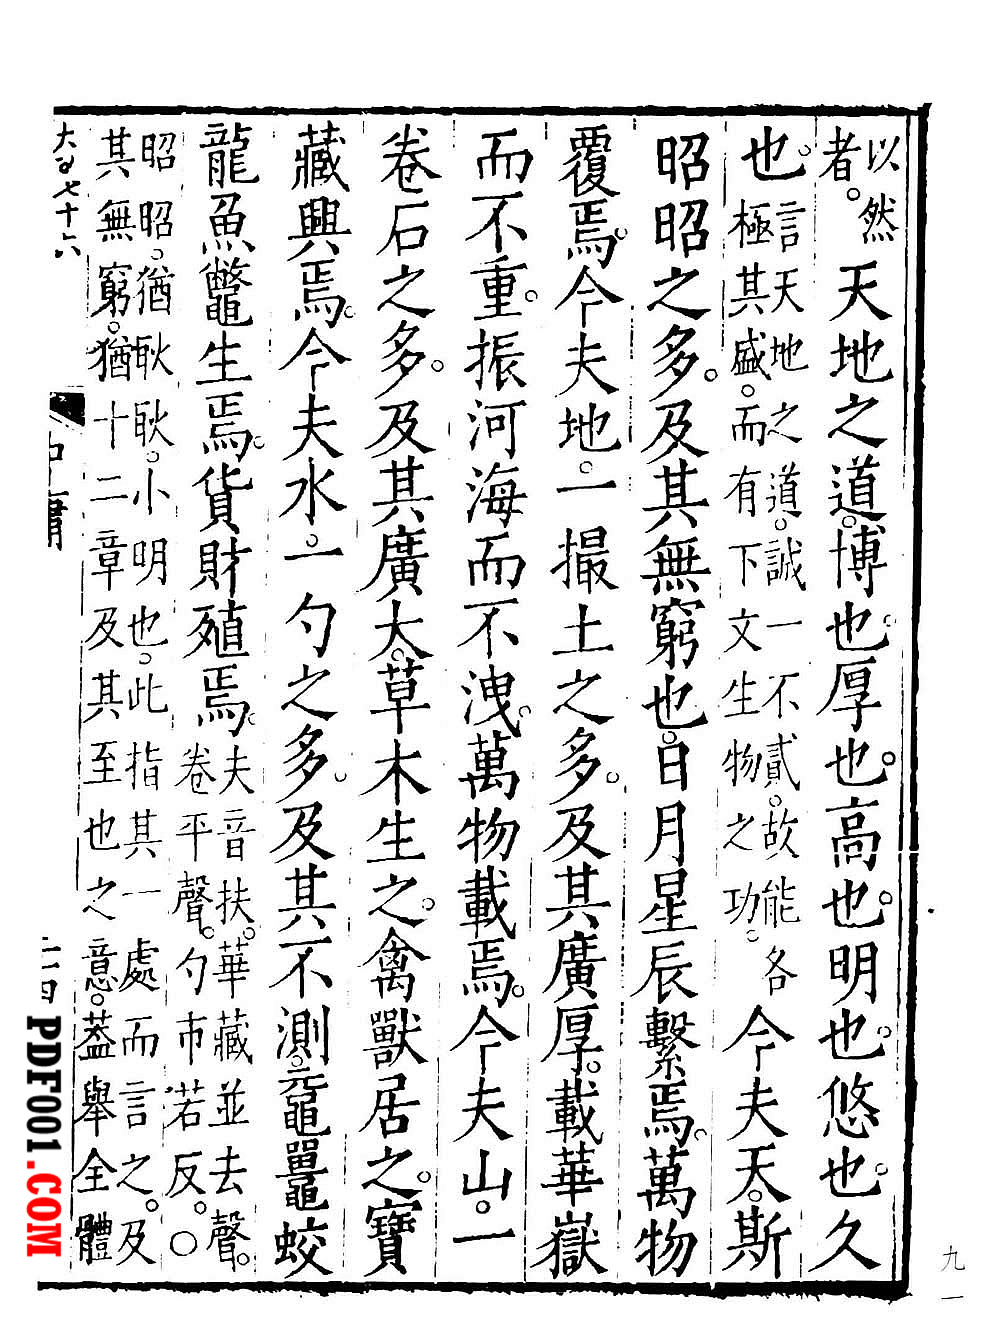 以然
者。天地之道。博也。厚也。高也。明也。悠也。久
也。言天地之道。誠一不貳。故能各
極其盛。而有下文生物之功。今夫天。斯
昭昭之多。及其無窮也。日月星辰繫焉。萬物
覆焉。今夫地。一撮土之多。及其廣厚。載華嶽
而不重。振河海而不洩。萬物載焉。今夫山。一
卷石之多。及其廣大。草木生之。禽獸居之。寶
藏興焉。今夫水。一勺之多。及其不測。黿鼉蛟
龍魚鼈生焉。貨財殖焉。夫音扶。華藏並去聲。
卷平聲。勺市若反。○
昭昭。猶耿耿。小明也。此指其一處而言之。及
其無窮。猶十二章及其至也之意。葢舉全體
大子七十六
中庸
二四
九一
PDF001.COM